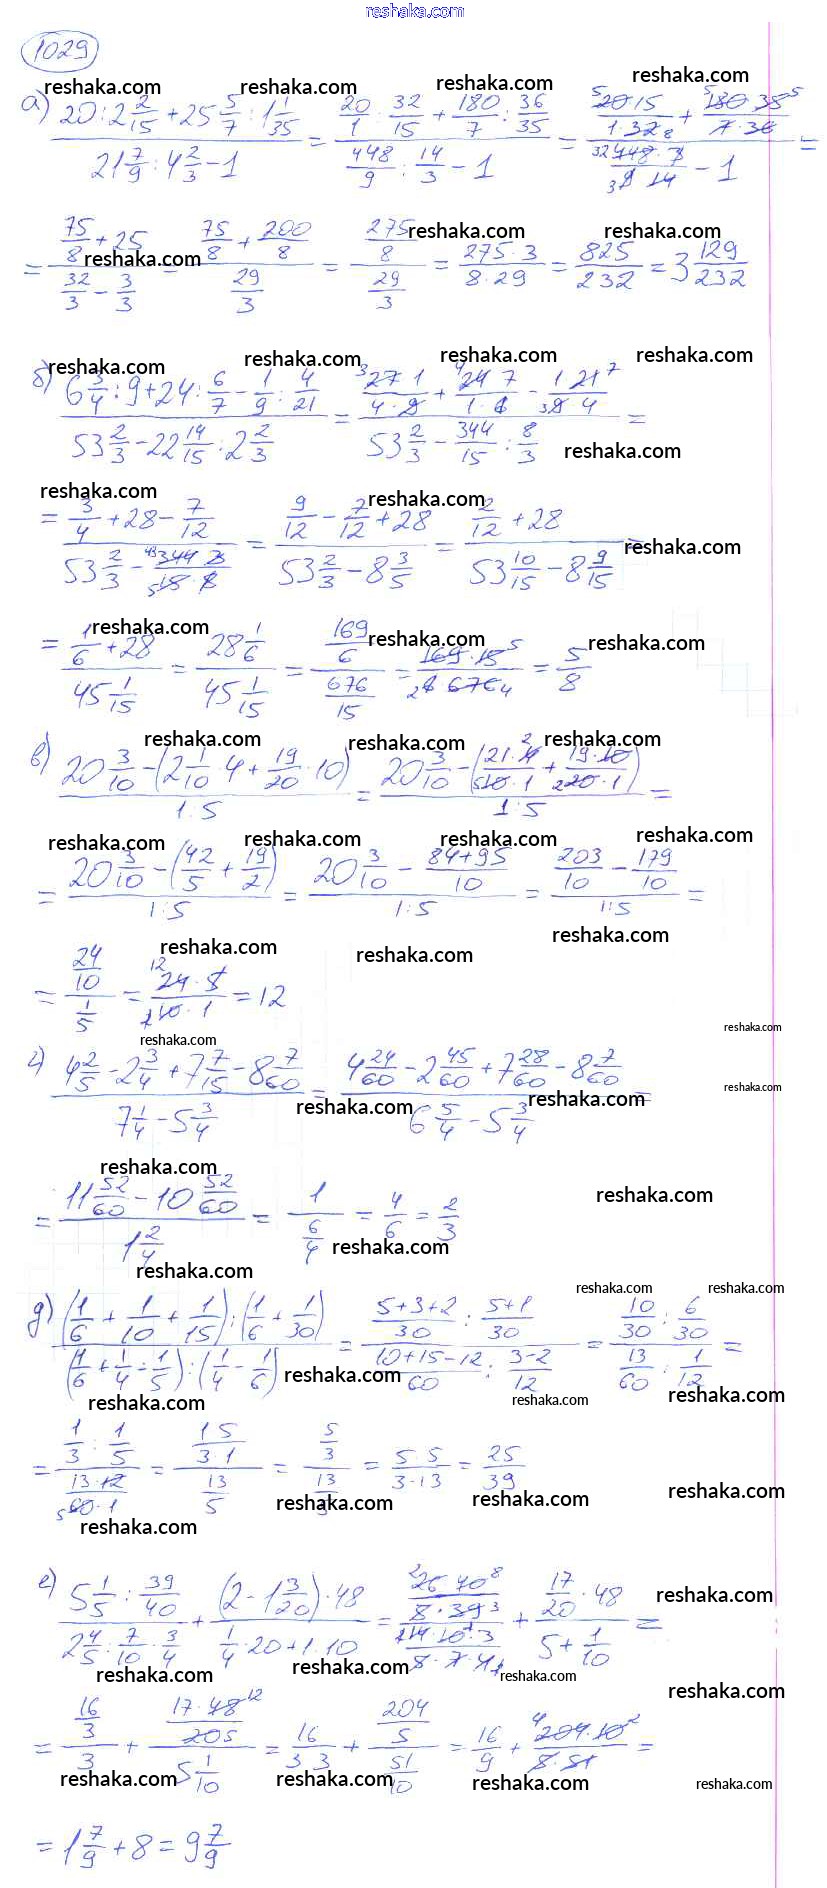 reshaka.com
1029
а) (20 : 2 2/15 + 25 5/7 : 1 1/35) / (21 7/9 : 4 2/3 − 1) = (20/1 : 32/15 + 180/7 : 36/35) / (448/9 : 14/3 − 1) = (20·15 / 1·32 + 180·35 / 7·36) / (448·3 / 9·14 − 1) =
= (75/8 + 25) / (32/3 − 3/3) = (75/8 + 200/8) / (29/3) = (275/8) / (29/3) = 275·3 / 8·29 = 825/232 = 3 129/232
б) (6 3/4 : 9 + 24 : 6/7 − 1/9 : 4/21) / (53 2/3 − 22 14/15 : 2 2/3) = (27·1 / 4·9 + 24·7 / 1·6 − 1·21 / 9·4) / (53 2/3 − 344/15 : 8/3) =
= (3/4 + 28 − 7/12) / (53 2/3 − 344·3 / 15·8) = (9/12 − 7/12 + 28) / (53 2/3 − 8 3/5) = (2/12 + 28) / (53 10/15 − 8 9/15) =
= (1/6 + 28) / (45 1/15) = (28 1/6) / (45 1/15) = (169/6) / (676/15) = 169·15 / 6·676 = 5/8
в) (20 3/10 − (2 1/10 · 4 + 19/20 · 10)) / (1:5) = (20 3/10 − (21·4 / 10·1 + 19·10 / 20·1)) / (1:5) =
= (20 3/10 − (42/5 + 19/2)) / (1:5) = (20 3/10 − (84+95)/10) / (1:5) = (203/10 − 179/10) / (1:5) =
= (24/10) / (1/5) = 24·5 / 10·1 = 12
г) (4 2/5 − 2 3/4 + 7 7/15 − 8 7/60) / (7 1/4 − 5 3/4) = (4 24/60 − 2 45/60 + 7 28/60 − 8 7/60) / (6 5/4 − 5 3/4) =
= (11 52/60 − 10 52/60) / (1 2/4) = 1 / (6/4) = 4/6 = 2/3
д) ((1/6 + 1/10 + 1/15) : (1/6 + 1/30)) / ((1/6 + 1/4 − 1/5) : (1/4 − 1/6)) = ((5+3+2)/30 : (5+1)/30) / ((10+15−12)/60 : (3−2)/12) = (10/30 : 6/30) / (13/60 : 1/12) =
= (1/3 : 1/5) / (13·12 / 60·1) = (1·5 / 3·1) / (13/5) = (5/3) / (13/5) = 5·5 / 3·13 = 25/39
е) (5 1/5 : 39/40) / (2 4/5 : 7/10 · 3/4) + ((2 − 1 3/20) · 48) / (1/4 · 20 + 1:10) = (26·40 / 5·39) / (14·10·3 / 5·7·4) + (17/20 · 48) / (5 + 1/10) =
= (16/3) / 3 + (17·48 / 20) / (5 1/10) = 16 / 3·3 + (204/5) / (51/10) = 16/9 + 204·10 / 5·51 =
= 1 7/9 + 8 = 9 7/9